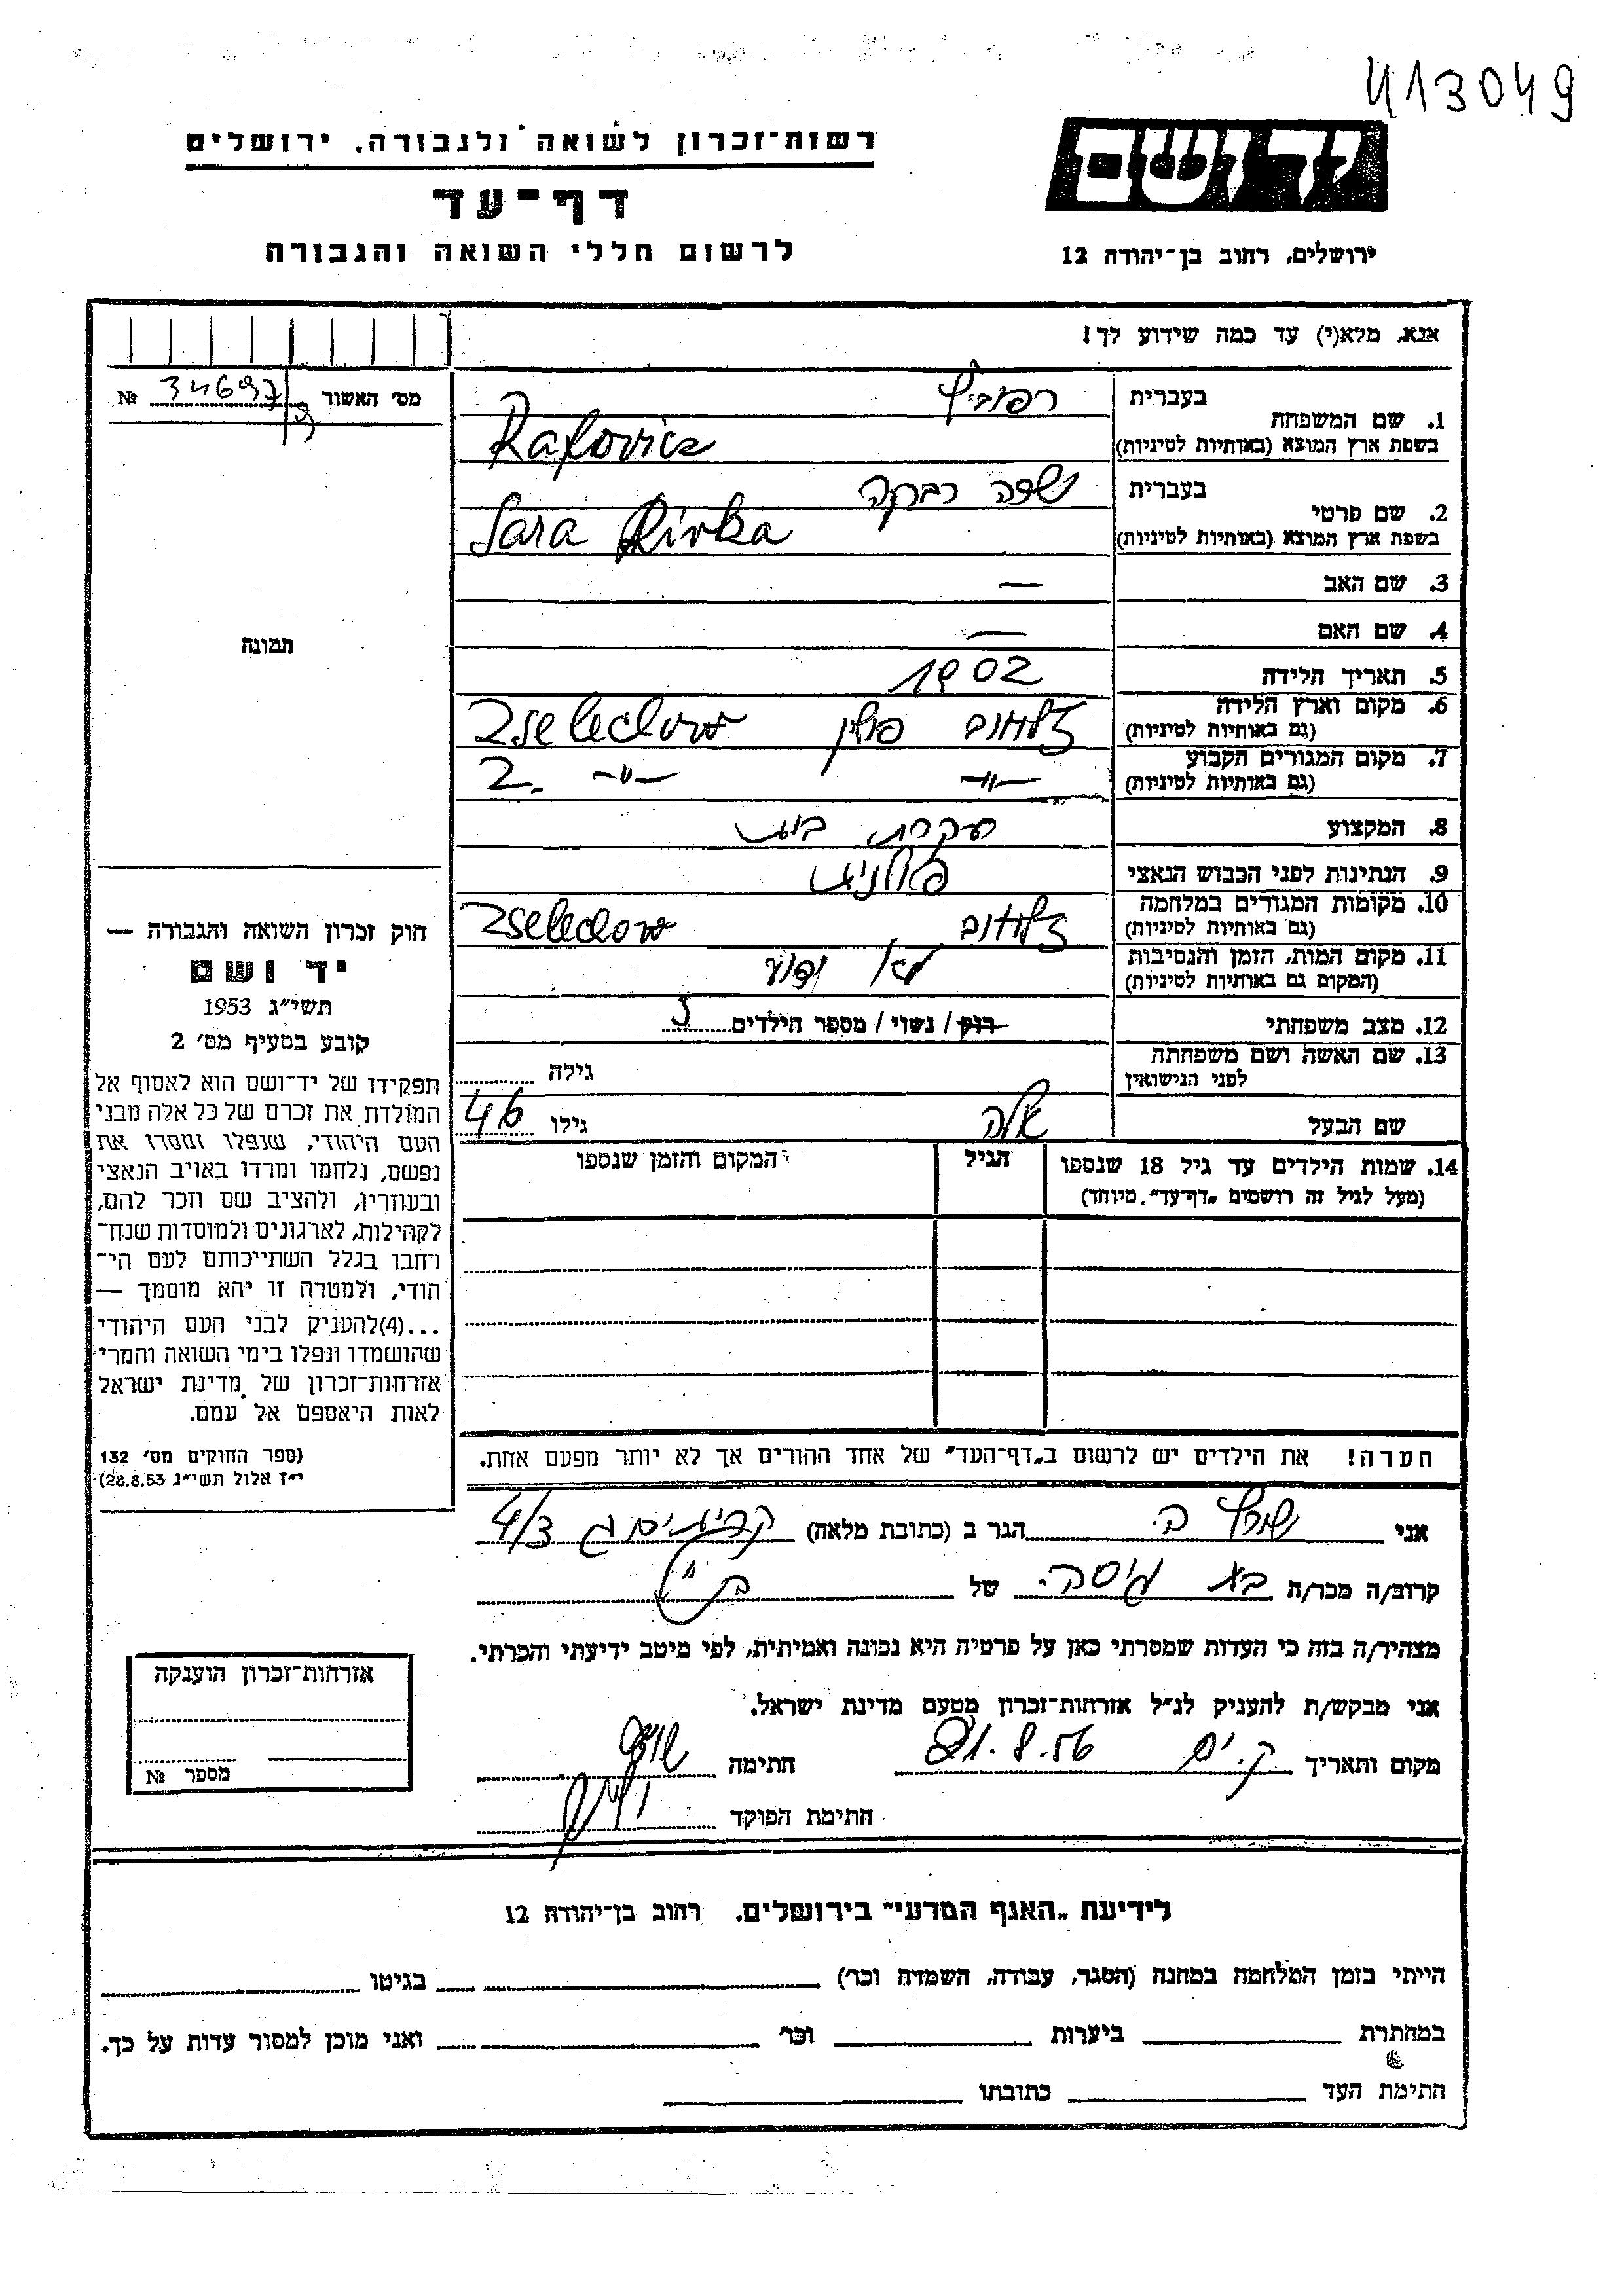 413049
רשות־זכרון לשואה ולגבורה, ירושלים
יד ושם
דף־עד
לרשום חללי השואה והגבורה
ירושלים, רחוב בן־יהודה 12
אנא, מלא(י) עד כמה שידוע לך!
מס׳ האשור 34697 №
1. שם המשפחה
בעברית רפוביץ
בשפת ארץ המוצא (באותיות לטיניות) Rafovicz
2. שם פרטי
בעברית שרה רבקה
בשפת ארץ המוצא (באותיות לטיניות) Sara Rivka
3. שם האב —
4. שם האם —
5. תאריך הלידה 1902
6. מקום וארץ הלידה
(גם באותיות לטיניות) זלחוב פולין Zselechow
7. מקום המגורים הקבוע
(גם באותיות לטיניות) —״— Z. —״—
8. המקצוע עקרת בית
9. הנתינות לפני הכבוש הנאצי פולנית
10. מקומות המגורים במלחמה
(גם באותיות לטיניות) זלחוב Zselechow
11. מקום המות, הזמן והנסיבות
(המקום גם באותיות לטיניות) לא ידוע
12. מצב משפחתי רוק / נשוי / מספר הילדים 5
13. שם האשה ושם משפחתה
לפני הנישואין גילה
שם הבעל גילו 46
14. שמות הילדים עד גיל 18 שנספו
(מעל לגיל זה רושמים „דף־עד״ מיוחד)
הגיל
המקום והזמן שנספו
הערה! את הילדים יש לרשום ב„דף־העד״ של אחד ההורים אך לא יותר מפעם אחת.
תמונה
חוק זכרון השואה והגבורה —
יד ושם
תשי״ג 1953
קובע בסעיף מס׳ 2
תפקידו של יד־ושם הוא לאסוף אל
המולדת את זכרם של כל אלה מבני
העם היהודי, שנפלו ומסרו את
נפשם, נלחמו ומרדו באויב הנאצי
ובעוזריו, ולהציב שם וזכר להם,
לקהילות, לארגונים ולמוסדות שנח־
רבו בגלל השתייכותם לעם הי־
הודי, ולמטרה זו יהא מוסמך —
...(4)להעניק לבני העם היהודי
שהושמדו ונפלו בימי השואה והמרי
אזרחות־זכרון של מדינת ישראל
לאות היאספם אל עמם.
(ספר החוקים מס׳ 132
י״ז אלול תשי״ג 28.8.53)
אני שורץ ב. הגר ב (כתובת מלאה) 4/3
קרוב/ה מכר/ה בת גיסה של
מצהיר/ה בזה כי העדות שמסרתי כאן על פרטיה היא נכונה ואמיתית, לפי מיטב ידיעתי והכרתי.
אני מבקש/ת להעניק לנ״ל אזרחות־זכרון מטעם מדינת ישראל.
מקום ותאריך ק. ים 21.8.56 חתימה
חתימת הפוקד
אזרחות־זכרון הוענקה
מספר №
לידיעת „האגף המדעי״ בירושלים, רחוב בן־יהודה 12
הייתי בזמן המלחמה במחנה (הסגר, עבודה, השמדה וכו׳) בגיטו
במחתרת ביערות וכו׳ ואני מוכן למסור עדות על כך.
חתימת העד כתובתו